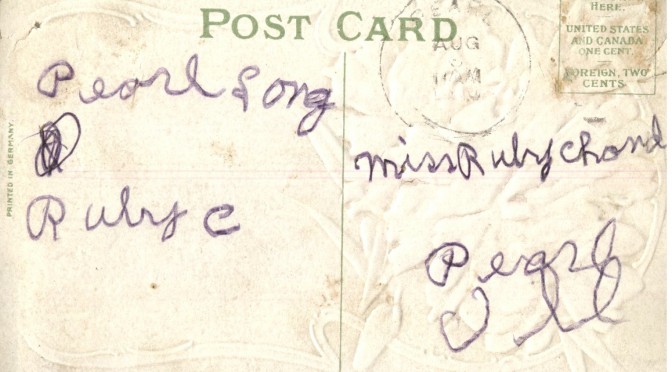 POST CARD
HERE.
UNITED STATES
AND CANADA
ONE CENT.
FOREIGN, TWO
CENTS.
PEARL
AUG
PRINTED IN GERMANY.
Pearl Long
Ruby C
Miss Ruby
Pearl
Ill